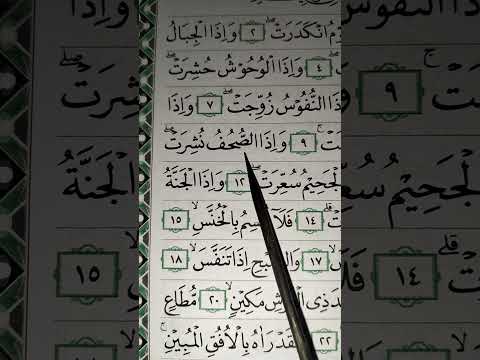 انْكَدَرَتْ ۖ ٢ وَاِذَا الْجِبَالُ
٤ وَاِذَا الْوُحُوْشُ حُشِرَتْ ۖ
النُّفُوْسُ زُوِّجَتْ ۖ ٧ وَاِذَا
٩ وَاِذَا الصُّحُفُ نُشِرَتْ ۖ
الْجَحِيْمُ سُعِّرَتْ ۖ ١٢ وَاِذَا الْجَنَّةُ
١٤ فَلَآ بِالْخُنَّسِ ۙ ١٥
١٧ اِذَا تَنَفَّسَ ۙ ١٨
ذِى مَكِيْنٍ ۙ ٢٠ مُطَاعٍ
٢٢ رَاٰهُ بِالْاُفُقِ الْمُبِيْنِ ۚ